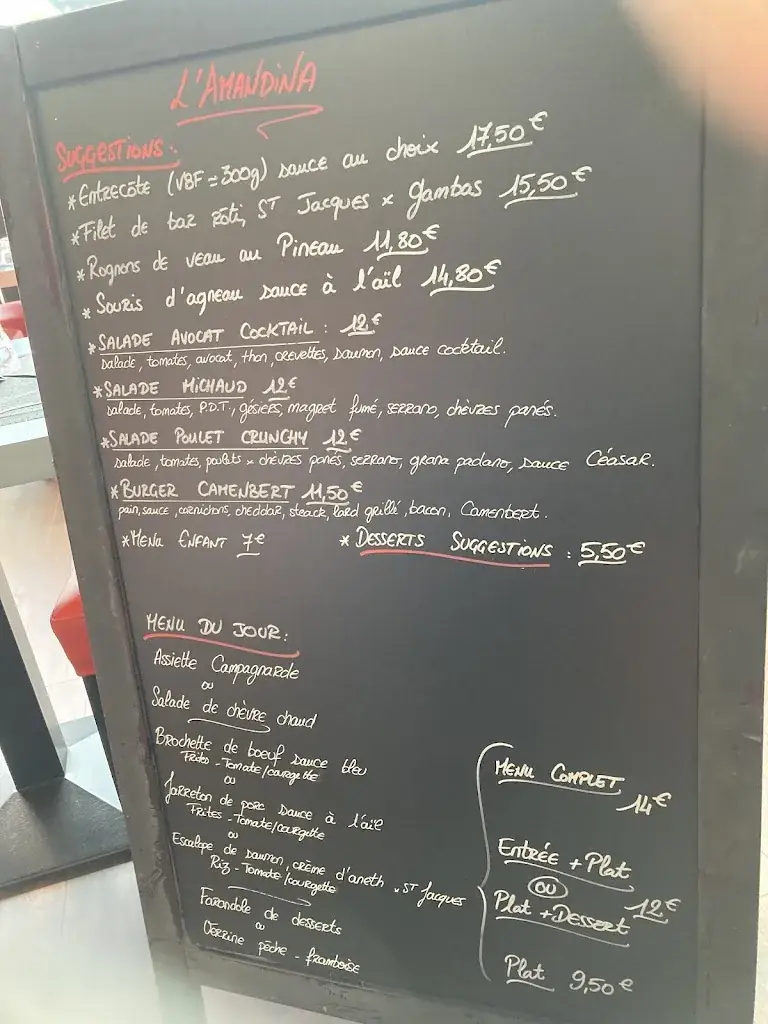 L'AMANDINA
SUGGESTIONS:
* Entrecôte (VBF = 300g) sauce au choix 17,50€
* Filet de bar rôti, ST Jacques x gambas 15,50€
* Rognons de veau au Pineau 11,80€
* Souris d'agneau sauce à l'aïl 14,80€
* SALADE AVOCAT COCKTAIL : 12€
salade, tomates, avocat, thon, crevettes, saumon, sauce cocktail.
* SALADE MICHAUD 12€
salade, tomates, P.D.T., gésiers, magret fumé, serrano, chèvres panés.
* SALADE POULET CRUNCHY 12€
salade, tomates, poulets x chèvres panés, serrano, grana padano, sauce Céasar.
* BURGER CAMENBERT 11,50€
pain, sauce, cornichons, cheddar, steack, lard grillé, bacon, Camenbert.
* MENU ENFANT 7€ * DESSERTS SUGGESTIONS : 5,50€
MENU DU JOUR:
Assiette Campagnarde
ou
Salade de chèvre chaud
Brochette de boeuf sauce bleu
Frites - Tomate/courgette
ou
Jarreton de porc sauce à l'aïl
Frites - Tomate/courgette
ou
Escalope de saumon, crème d'aneth x ST Jacques
Riz - Tomate/courgette
Farandole de desserts
ou
Verrine pêche - framboise
MENU COMPLET
14€
Entrée + Plat
OU
Plat + Dessert 12€
Plat 9,50€